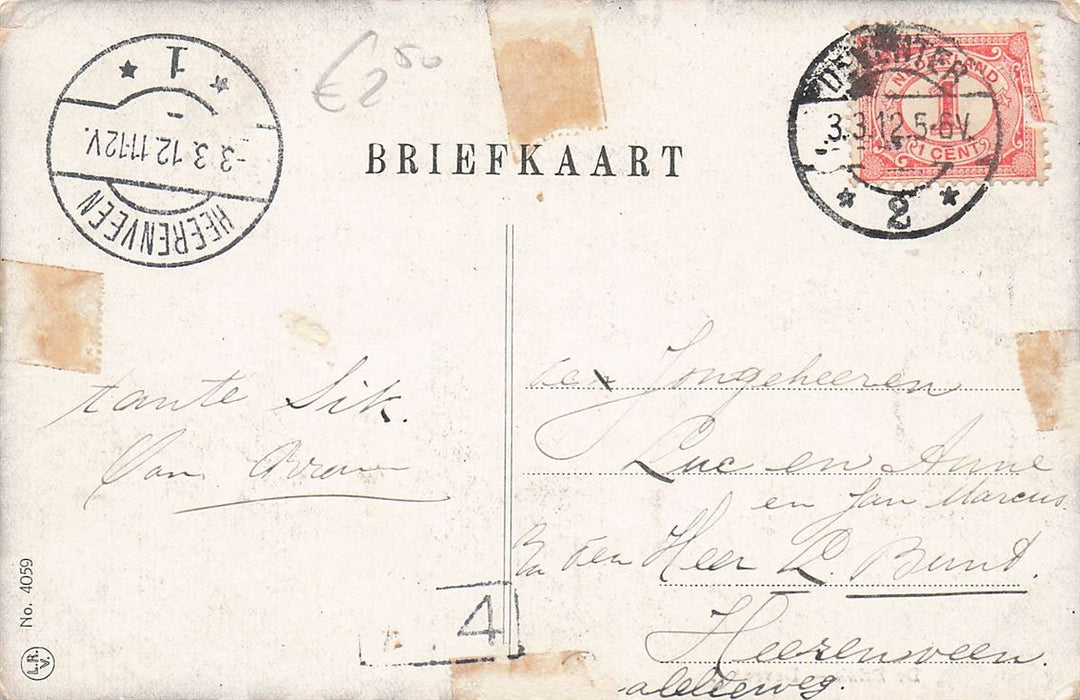 1
-3.3.12.11-12V.
HEERENVEEN
€2 50
DEVENTER
3.3.12.5-6V.
2
NEDERLAND
1
1 CENT
BRIEFKAART
tante Sik.
Van
den Jongeheeren
Luc en Anne
en Jan Marcus
den Heer L. Bunt.
Heerenveen.
4
No. 4059
L.R.
V.